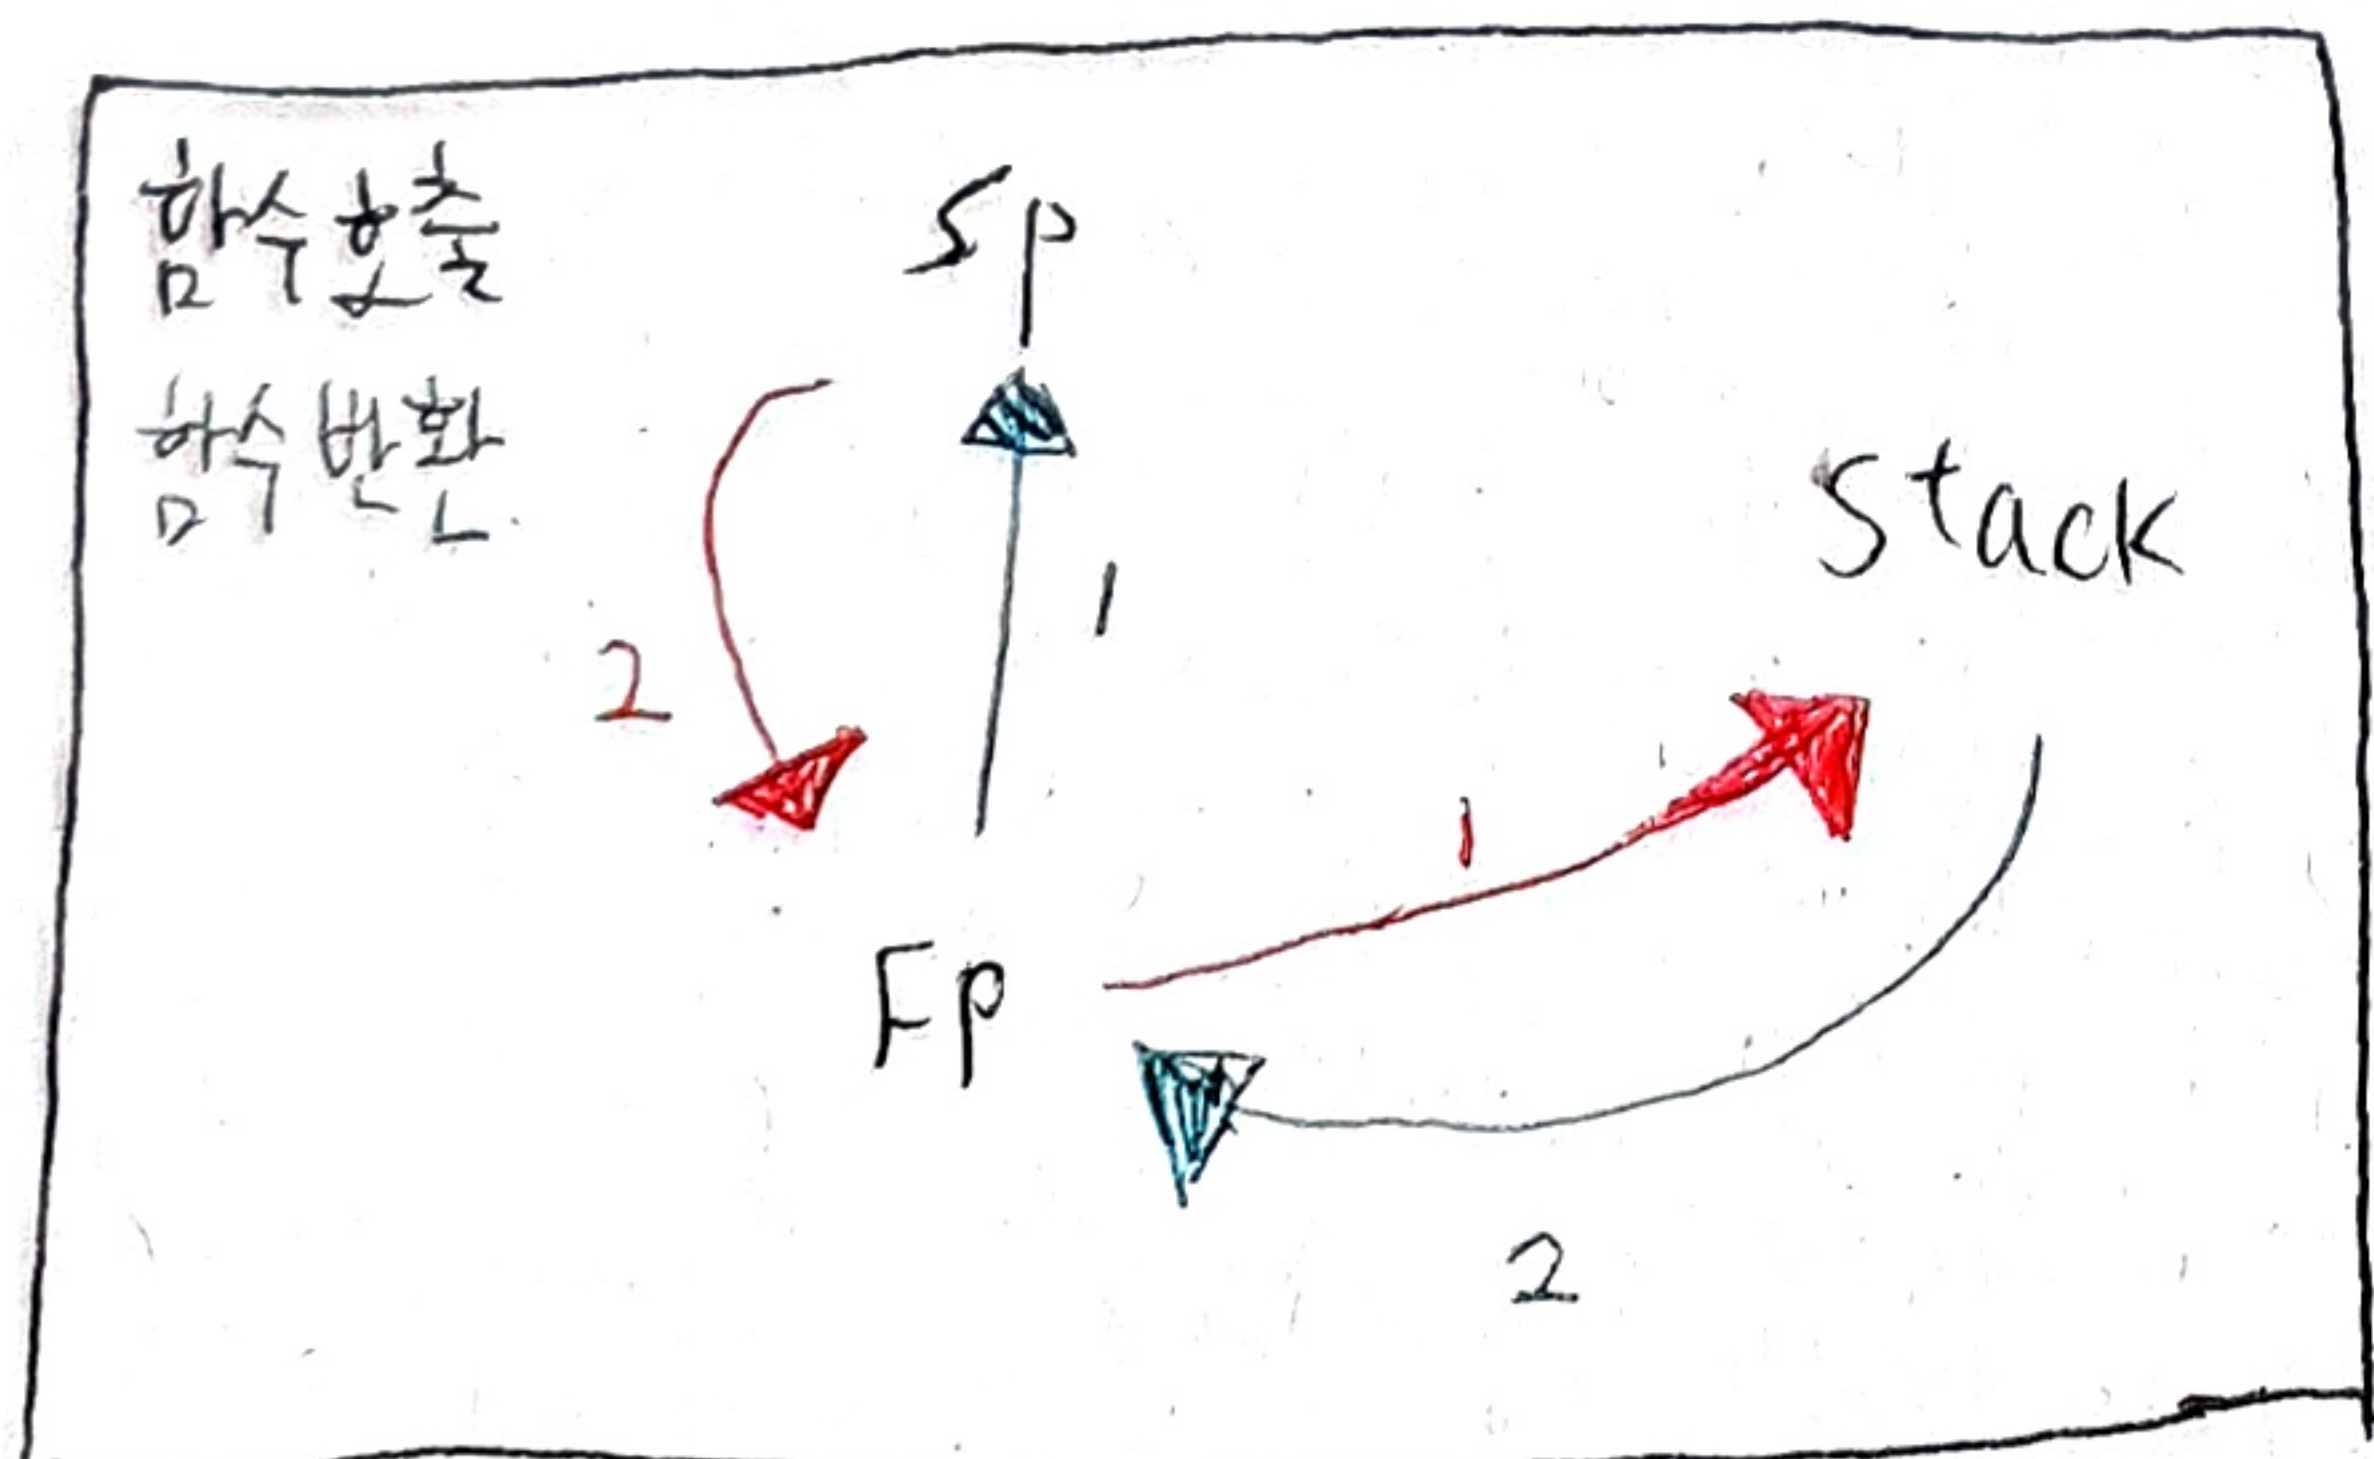 함수호출
함수반환
SP
Stack
1
2
1
FP
2